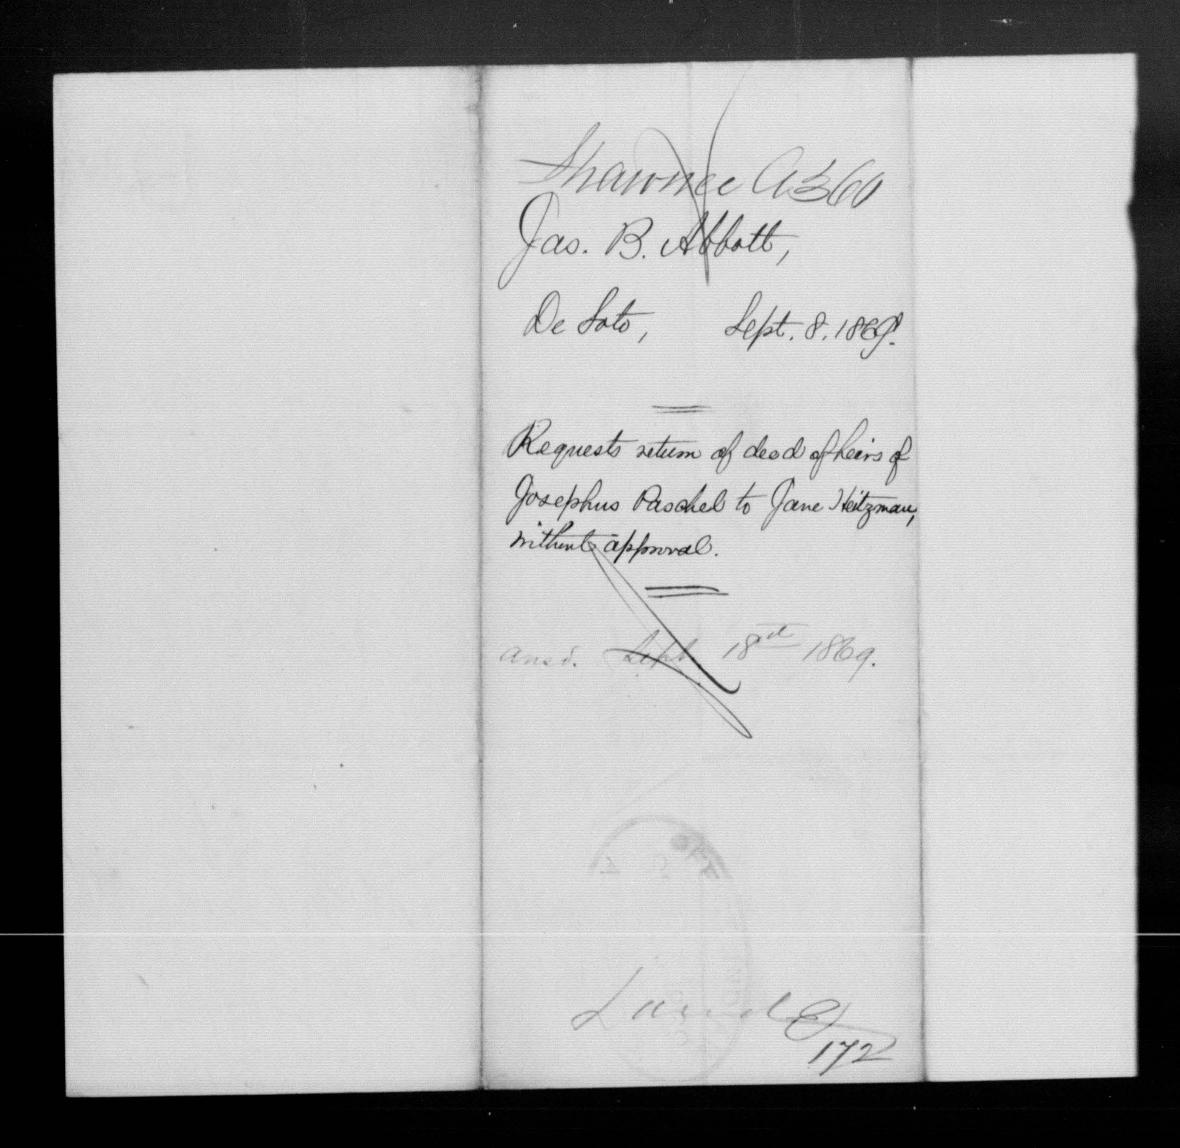 Shawnee A360
Jas. B. Abbott,
De Soto, Sept. 8. 1869.
Requests return of deed of heirs of
Josephus Paschel to Jane Heitzman,
without approval.
ansd. Sept 18th 1869.
Land
172